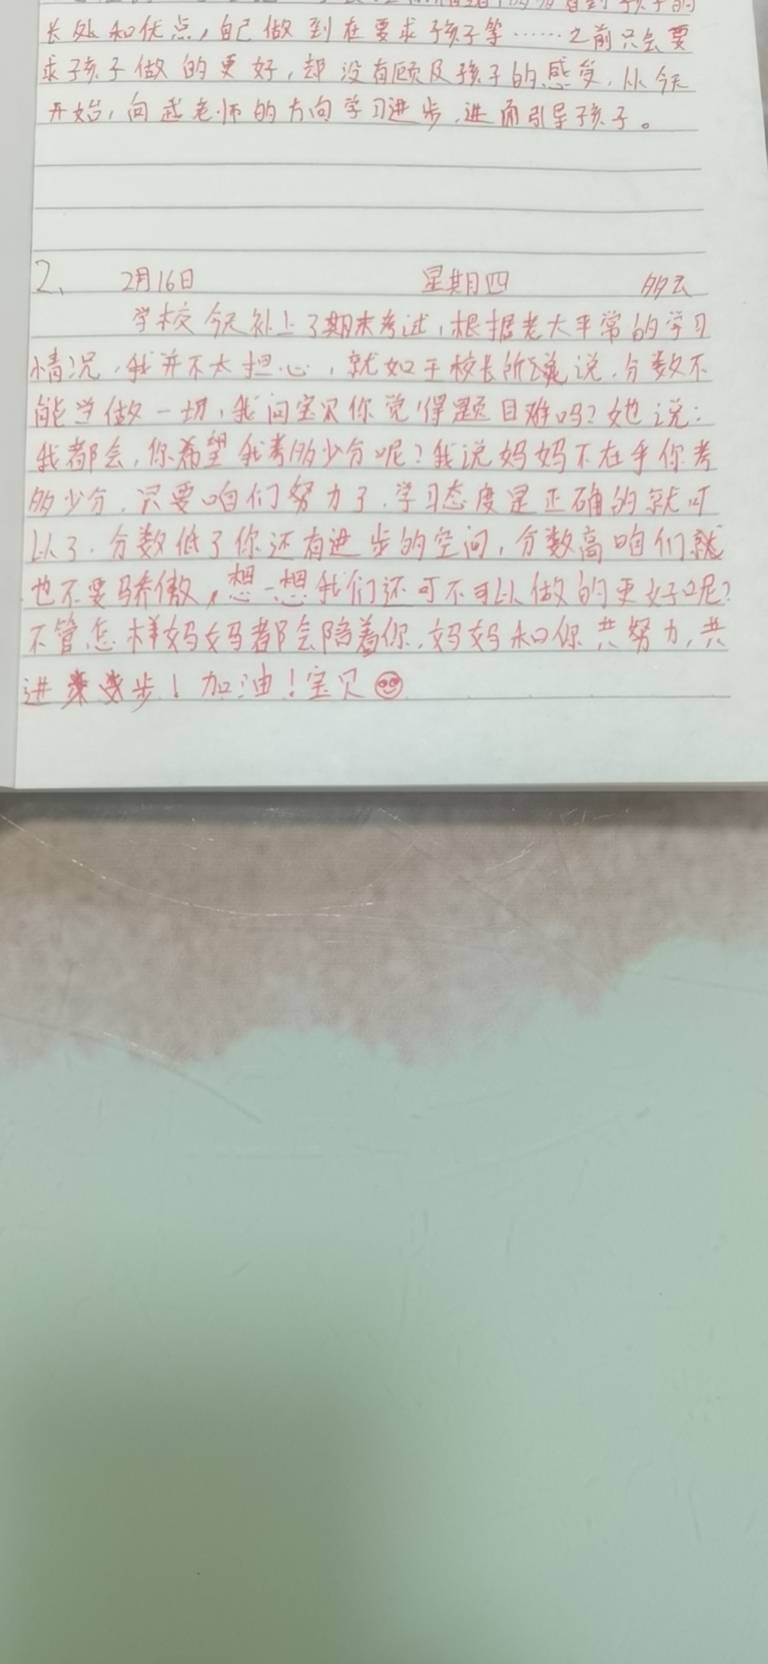 长处和优点，自己做到在要求孩子等……之前只会要
求孩子做的更好，却没有顾及孩子的感受，从今天
开始，向武老师的方向学习进步，进而引导孩子。
2、 2月16日 星期四 多云
学校今天补上了期末考试，根据老大平常的学习
情况，我并不太担心，就如王校长所说，分数不
能当做一切，我问宝贝你觉得题目难吗？她说：
我都会，你希望我考多少分呢？我说妈妈不在乎你考
多少分，只要咱们努力了，学习态度是正确的就可
以了，分数低了你还有进步的空间，分数高咱们就
也不要骄傲，想一想我们还可不可以做的更好呢？
不管怎样妈妈都会陪着你，妈妈和你共努力，共
进步！加油！宝贝